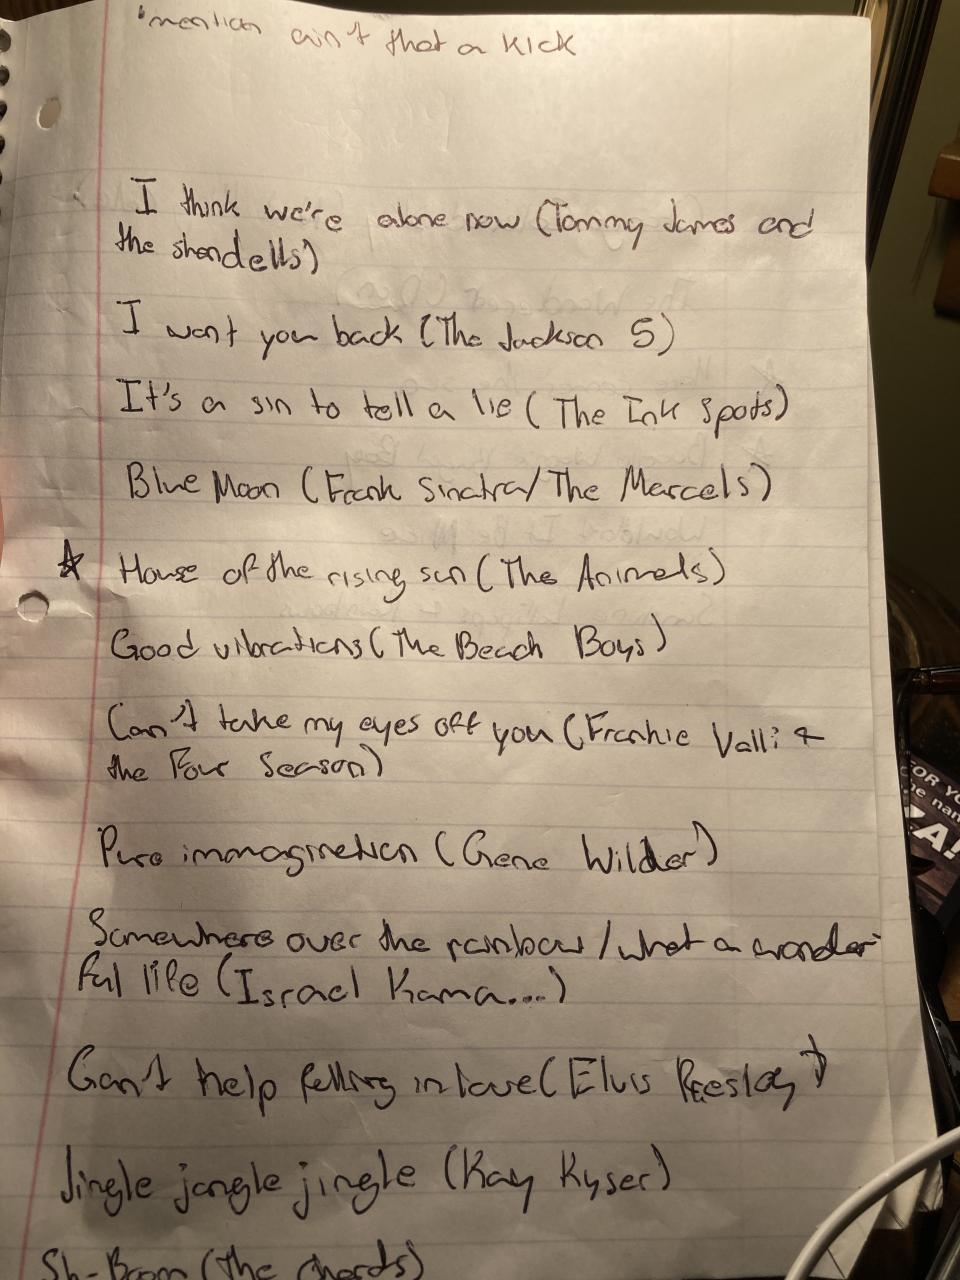 'mention ain't that a kick
I think we're alone now (Tommy James and
the shondells)
I want you back (The Jackson 5)
It's a sin to tell a lie (The Ink Spots)
Blue Moon (Frank Sinatra/The Marcels)
House of the rising sun (The Animals)
Good vibrations (The Beach Boys)
Can't take my eyes off you (Frankie Valli &
the Four Season)
Pure immagination (Gene Wilder)
Somewhere over the rainbow/what a wonder
ful life (Israel Kama...)
Can't help falling in love (Elvis Preesley)
Jingle jangle jingle (Kay Kyser)
Sh-Boom (the chords)
FOR YO
ZA!